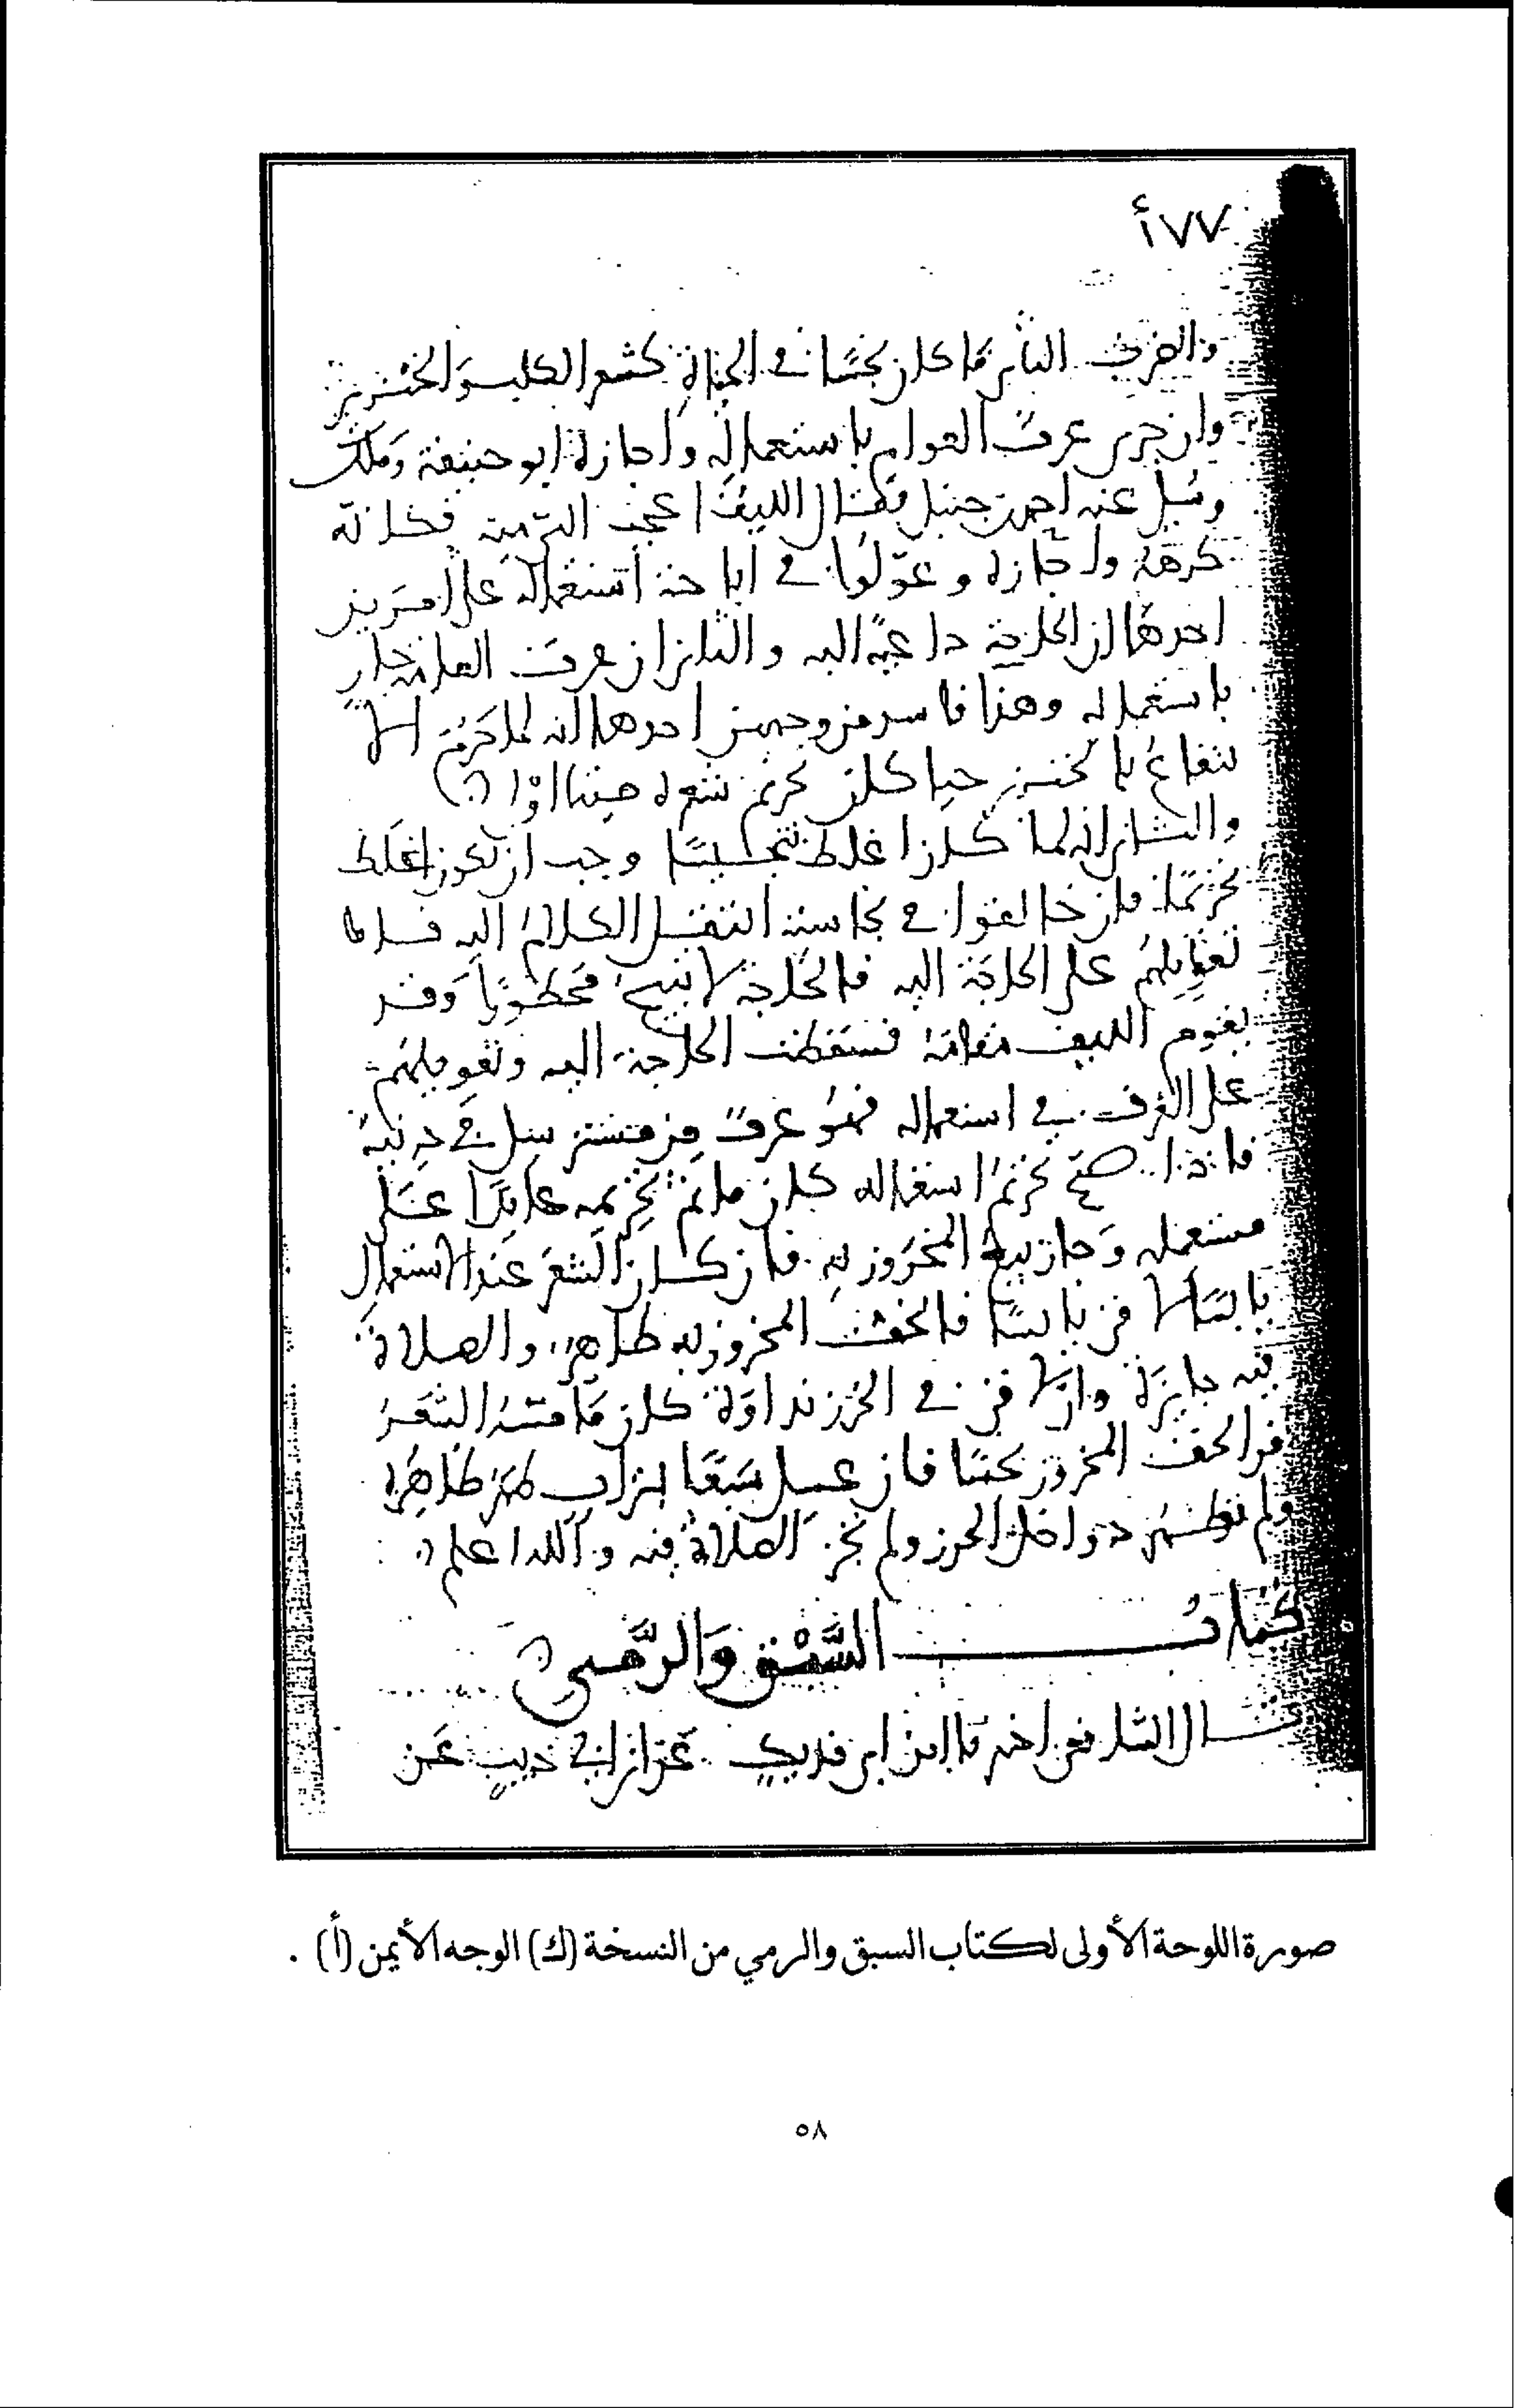 ١٧٧أ
والضرب الثاني ما كان نجسا في الحياة كشعر الكلب والخنزير
وان جرى عرف العوام باستعماله واجازه ابو حنيفة ومالك
وسئل عنه احمد بن حنبل فقال الليف اعجب الي منه فكانه
كرهه واجازه وعولوا في اباحة استعماله على امرين
احدهما ان الحاجة داعية اليه والثاني ان عرف العامة جار
باستعماله وهذا فاسد من وجهين احدهما انه لما حرم الا
نتفاع بالخنزير حيا كان تحريم شعره ميتا اولى
والثاني انه لما كان اغلظ تنجيسا وجب ان يكون اغلظ
تحريما فان خالفوا في نجاسته انتقل الكلام اليه فاما
تعويلهم على الحاجة اليه فالحاجة لا تبيح محظورا وقد
يقوم الليف مقامه فسقطت الحاجة اليه وتعويلهم
على العرف في استعماله فهو عرف من مسترسل في دينه
فاذا صح تحريم استعماله كان ماثم تحريمه عايدا على
مستعمله وجاز بيع المخروز به فان كان الشعر عند الاستعمال
يابسا لاقى يابسا فالخف المخروز به طاهر والصلاة
فيه جايزة وان لاقى في الخرز نداوة كان ما مسه الشعر
من الخف المخروز نجسا فان غسل سبعا بتراب طهر ظاهره
ولم يطهر دواخل الخرز ولم تجز الصلاة فيه والله اعلم
كتاب السَّبْق وَالرَّمي
قال الشافعي اخبرنا ابن ابي فديك عن ابن ابي ذيب عن
صورة اللوحة الأولى لكتاب السبق والرمي من النسخة (ك) الوجه الأيمن (أ) .
٥٨